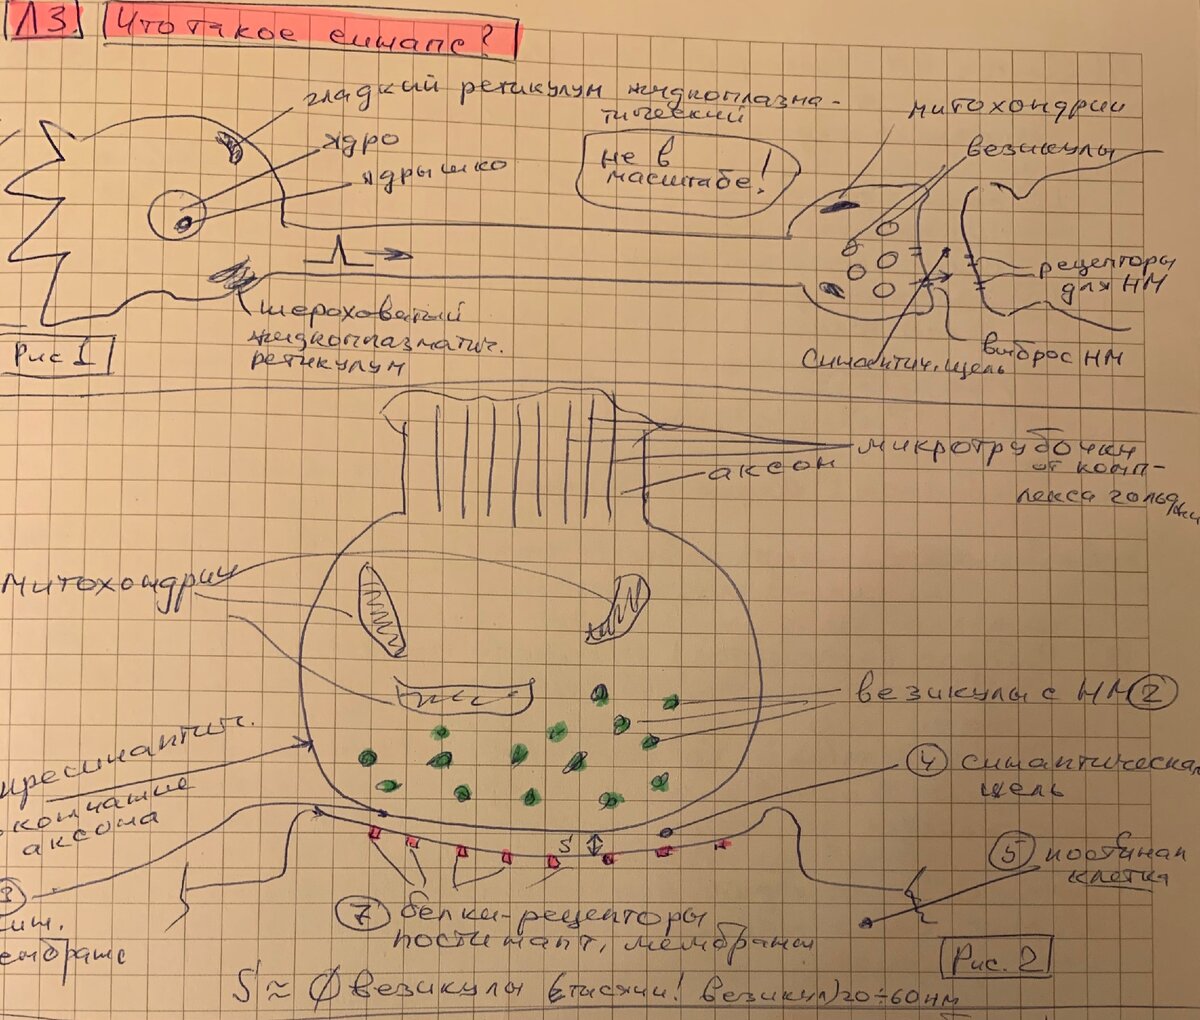 Л3. Что такое синапс?
гладкий ретикулум жидкоплазма-
тический
ядро
ядрышко
не в
масштабе!
митохондрии
везикулы
рецепторы
для НМ
выброс НМ
Синаптич. щель
шероховатый
жидкоплазматич.
ретикулум
Рис 1
микротрубочки
от комп-
лекса гольджи
аксон
митохондрии
везикулы с НМ 2
пресинаптич.
окончание
аксона
4 синаптическая
щель
5 постсинап
клетка
3
син.
мембрана
7 белки-рецепторы
постсинапт. мембраны
Рис. 2
S ≈ ∅ везикулы (тысячи! везикул) 20÷60нм
S